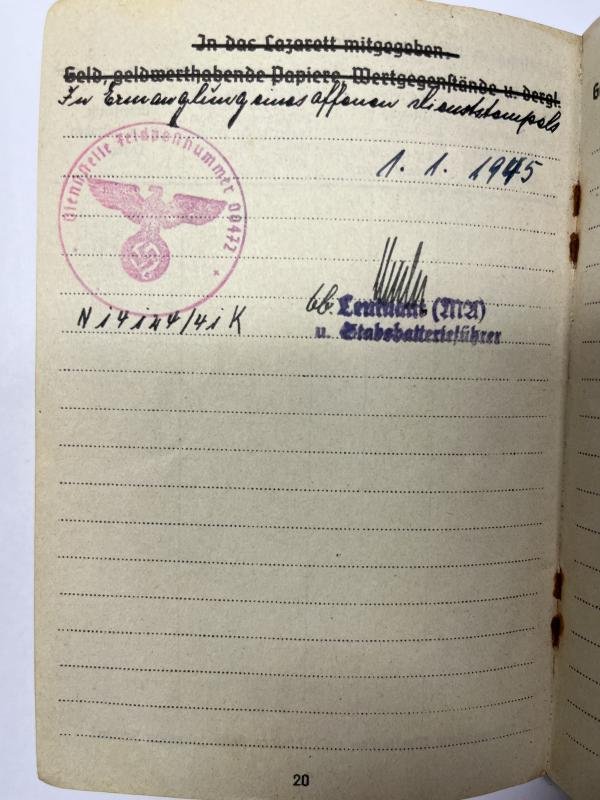 In das Lazarett mitgegeben.
Geld, geldwerthabende Papiere, Wertgegenstände u. dergl.
In Ermanglung eines offenen Dienststempels
1. 1. 1945
Dienststelle Feldpostnummer 00472
N 14124/41 K
Leutnant (MA)
u. Stabsbatterieführer
20